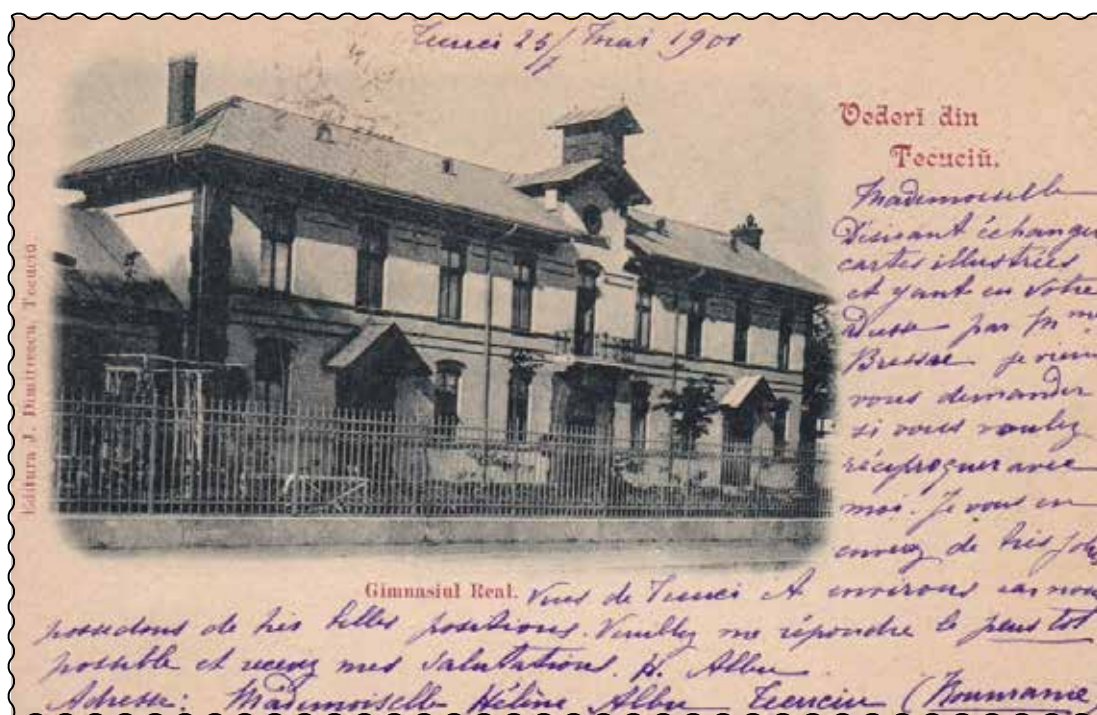 Tecuci 25/ Mai 1901
Vederi din
Tecuciŭ.
Editura J. Dimitrescu, Tecuciŭ.
Mademoiselle
Désirant échanger
cartes illustrées
et yant eu votre
par Mme
je viens
vous demander
si vous voulez
réciproquer avec
moi. Je vous en
de très jolies
Gimnasiul Real. Vues de Tecuci et environs car nous
possedons de très belles positions. Veuillez me répondre le plus tot
possible et recevez mes salutations. H. Albu
Adresse: Mademoiselle Hélène Albu Tecuciu (Roumanie